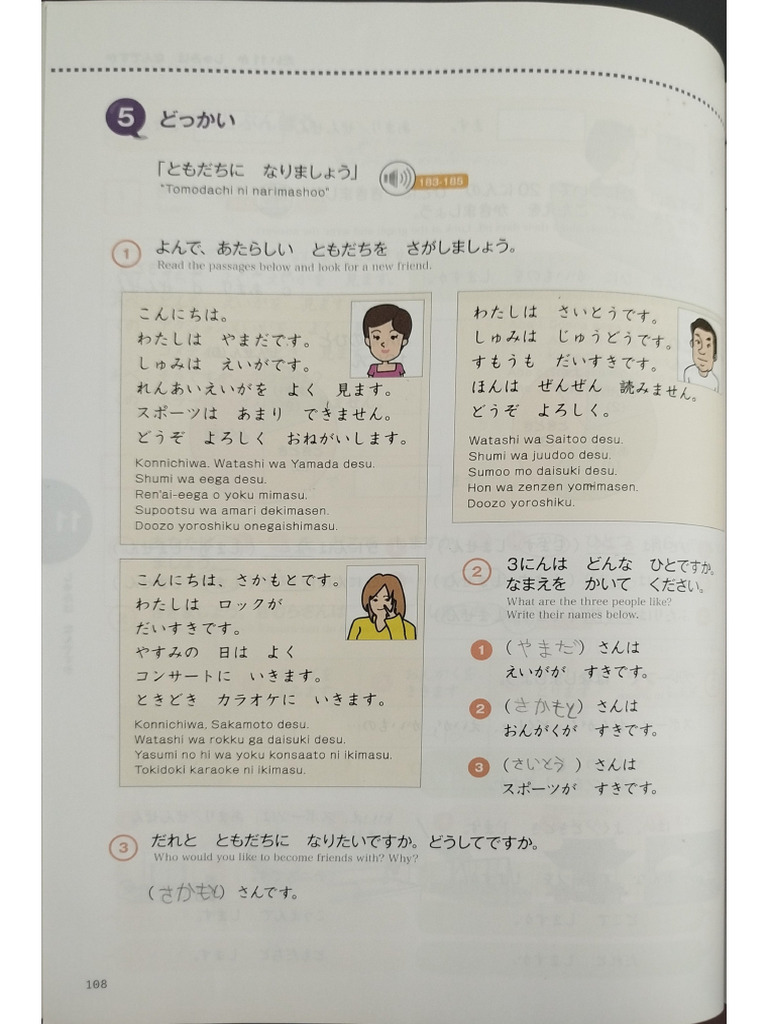 5 どっかい
「ともだちに なりましょう」 183-185
"Tomodachi ni narimashoo"
1 よんで、あたらしい ともだちを さがしましょう。
Read the passages below and look for a new friend.
こんにちは。
わたしは やまだです。
しゅみは えいがです。
れんあいえいがを よく 見ます。
スポーツは あまり できません。
どうぞ よろしく おねがいします。
Konnichiwa. Watashi wa Yamada desu.
Shumi wa eega desu.
Ren'ai-eega o yoku mimasu.
Supootsu wa amari dekimasen.
Doozo yoroshiku onegaishimasu.
わたしは さいとうです。
しゅみは じゅうどうです。
すもうも だいすきです。
ほんは ぜんぜん 読みません。
どうぞ よろしく。
Watashi wa Saitoo desu.
Shumi wa juudoo desu.
Sumoo mo daisuki desu.
Hon wa zenzen yomimasen.
Doozo yoroshiku.
こんにちは、さかもとです。
わたしは ロックが
だいすきです。
やすみの 日は よく
コンサートに いきます。
ときどき カラオケに いきます。
Konnichiwa, Sakamoto desu.
Watashi wa rokku ga daisuki desu.
Yasumi no hi wa yoku konsaato ni ikimasu.
Tokidoki karaoke ni ikimasu.
2 3にんは どんな ひとですか。
なまえを かいて ください。
What are the three people like?
Write their names below.
1 (やまだ) さんは
えいがが すきです。
2 (さかもと) さんは
おんがくが すきです。
3 (さいとう) さんは
スポーツが すきです。
3 だれと ともだちに なりたいですか。どうしてですか。
Who would you like to become friends with? Why?
(さかもと) さんです。
108